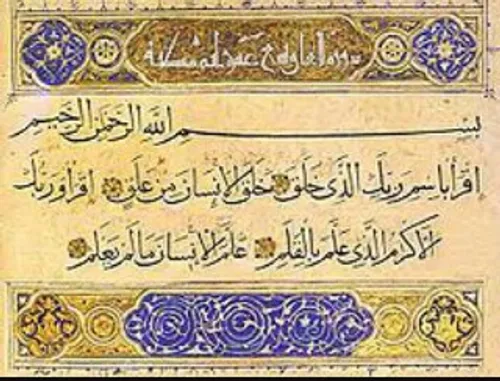 سورة مكية
بِسْمِ اللَّهِ الرَّحْمَنِ الرَّحِيمِ
اقْرَأْ بِاسْمِ رَبِّكَ الَّذِى خَلَقَ خَلَقَ الْإِنْسَانَ مِنْ عَلَقٍ اقْرَأْ وَرَبُّكَ
الْأَكْرَمُ الَّذِى عَلَّمَ بِالْقَلَمِ عَلَّمَ الْإِنْسَانَ مَا لَمْ يَعْلَمْ